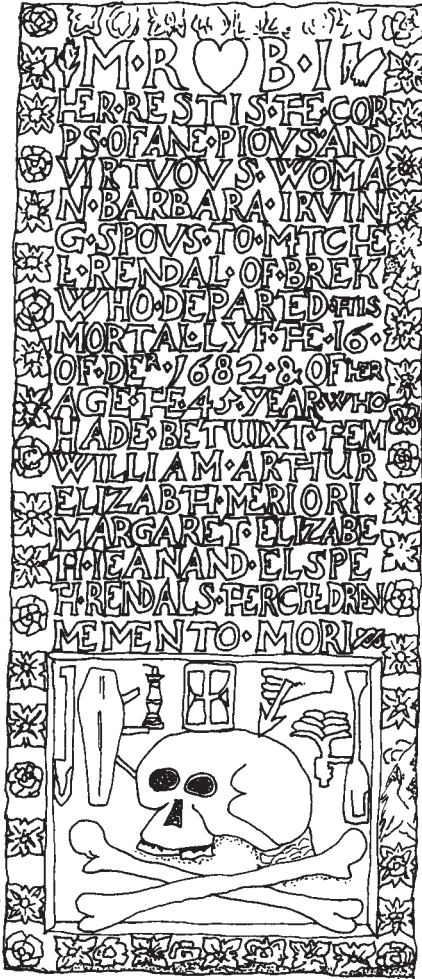 M·R ♡ B·I
HER·RESTIS·THE·COR
PS·OF ANE·PIOVS·AND
VIRTVOVS·WOMA
N·BARBARA·IRVIN
G·SPOVS·TO·MITCHE
L·RENDAL·OF·BREK
WHO·DEPARED·THIS
MORTAL·LYF·THE·16·
OF·DER·1682·&OF HER
AGE·THE·45·YEAR WHO
HADE·BETUIXT·THEM
WILLIAM·ARTHUR
ELIZABTH·MERIORI·
MARGARET·ELIZABE
TH·IEAN AND·ELSPE
TH·RENDALS·THER CHLDREN
MEMENTO·MORI